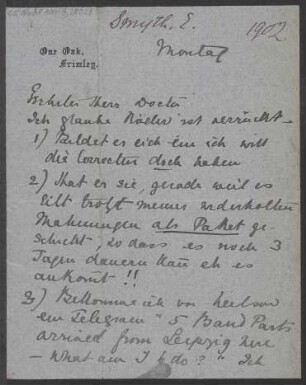 Smyth. E.
1902
One Oak,
Frimley.
Montag
Geehrter Herr Doctor
Ich glaube Röder ist verrückt –
1) Bildet er sich ein ich will
die Correctur doch haben
2) Hat er sie, gerade weil es
eilt trotz meiner wiederholten
Mahnungen als Paket ge-
schickt, so dass es noch 3
Tagen dauern kann eh es
ankommt !!
3) Bekomme ich von
ein Telegram " 5 Band Parts
arrived from Leipzig here
– What am I to do ? " Ich